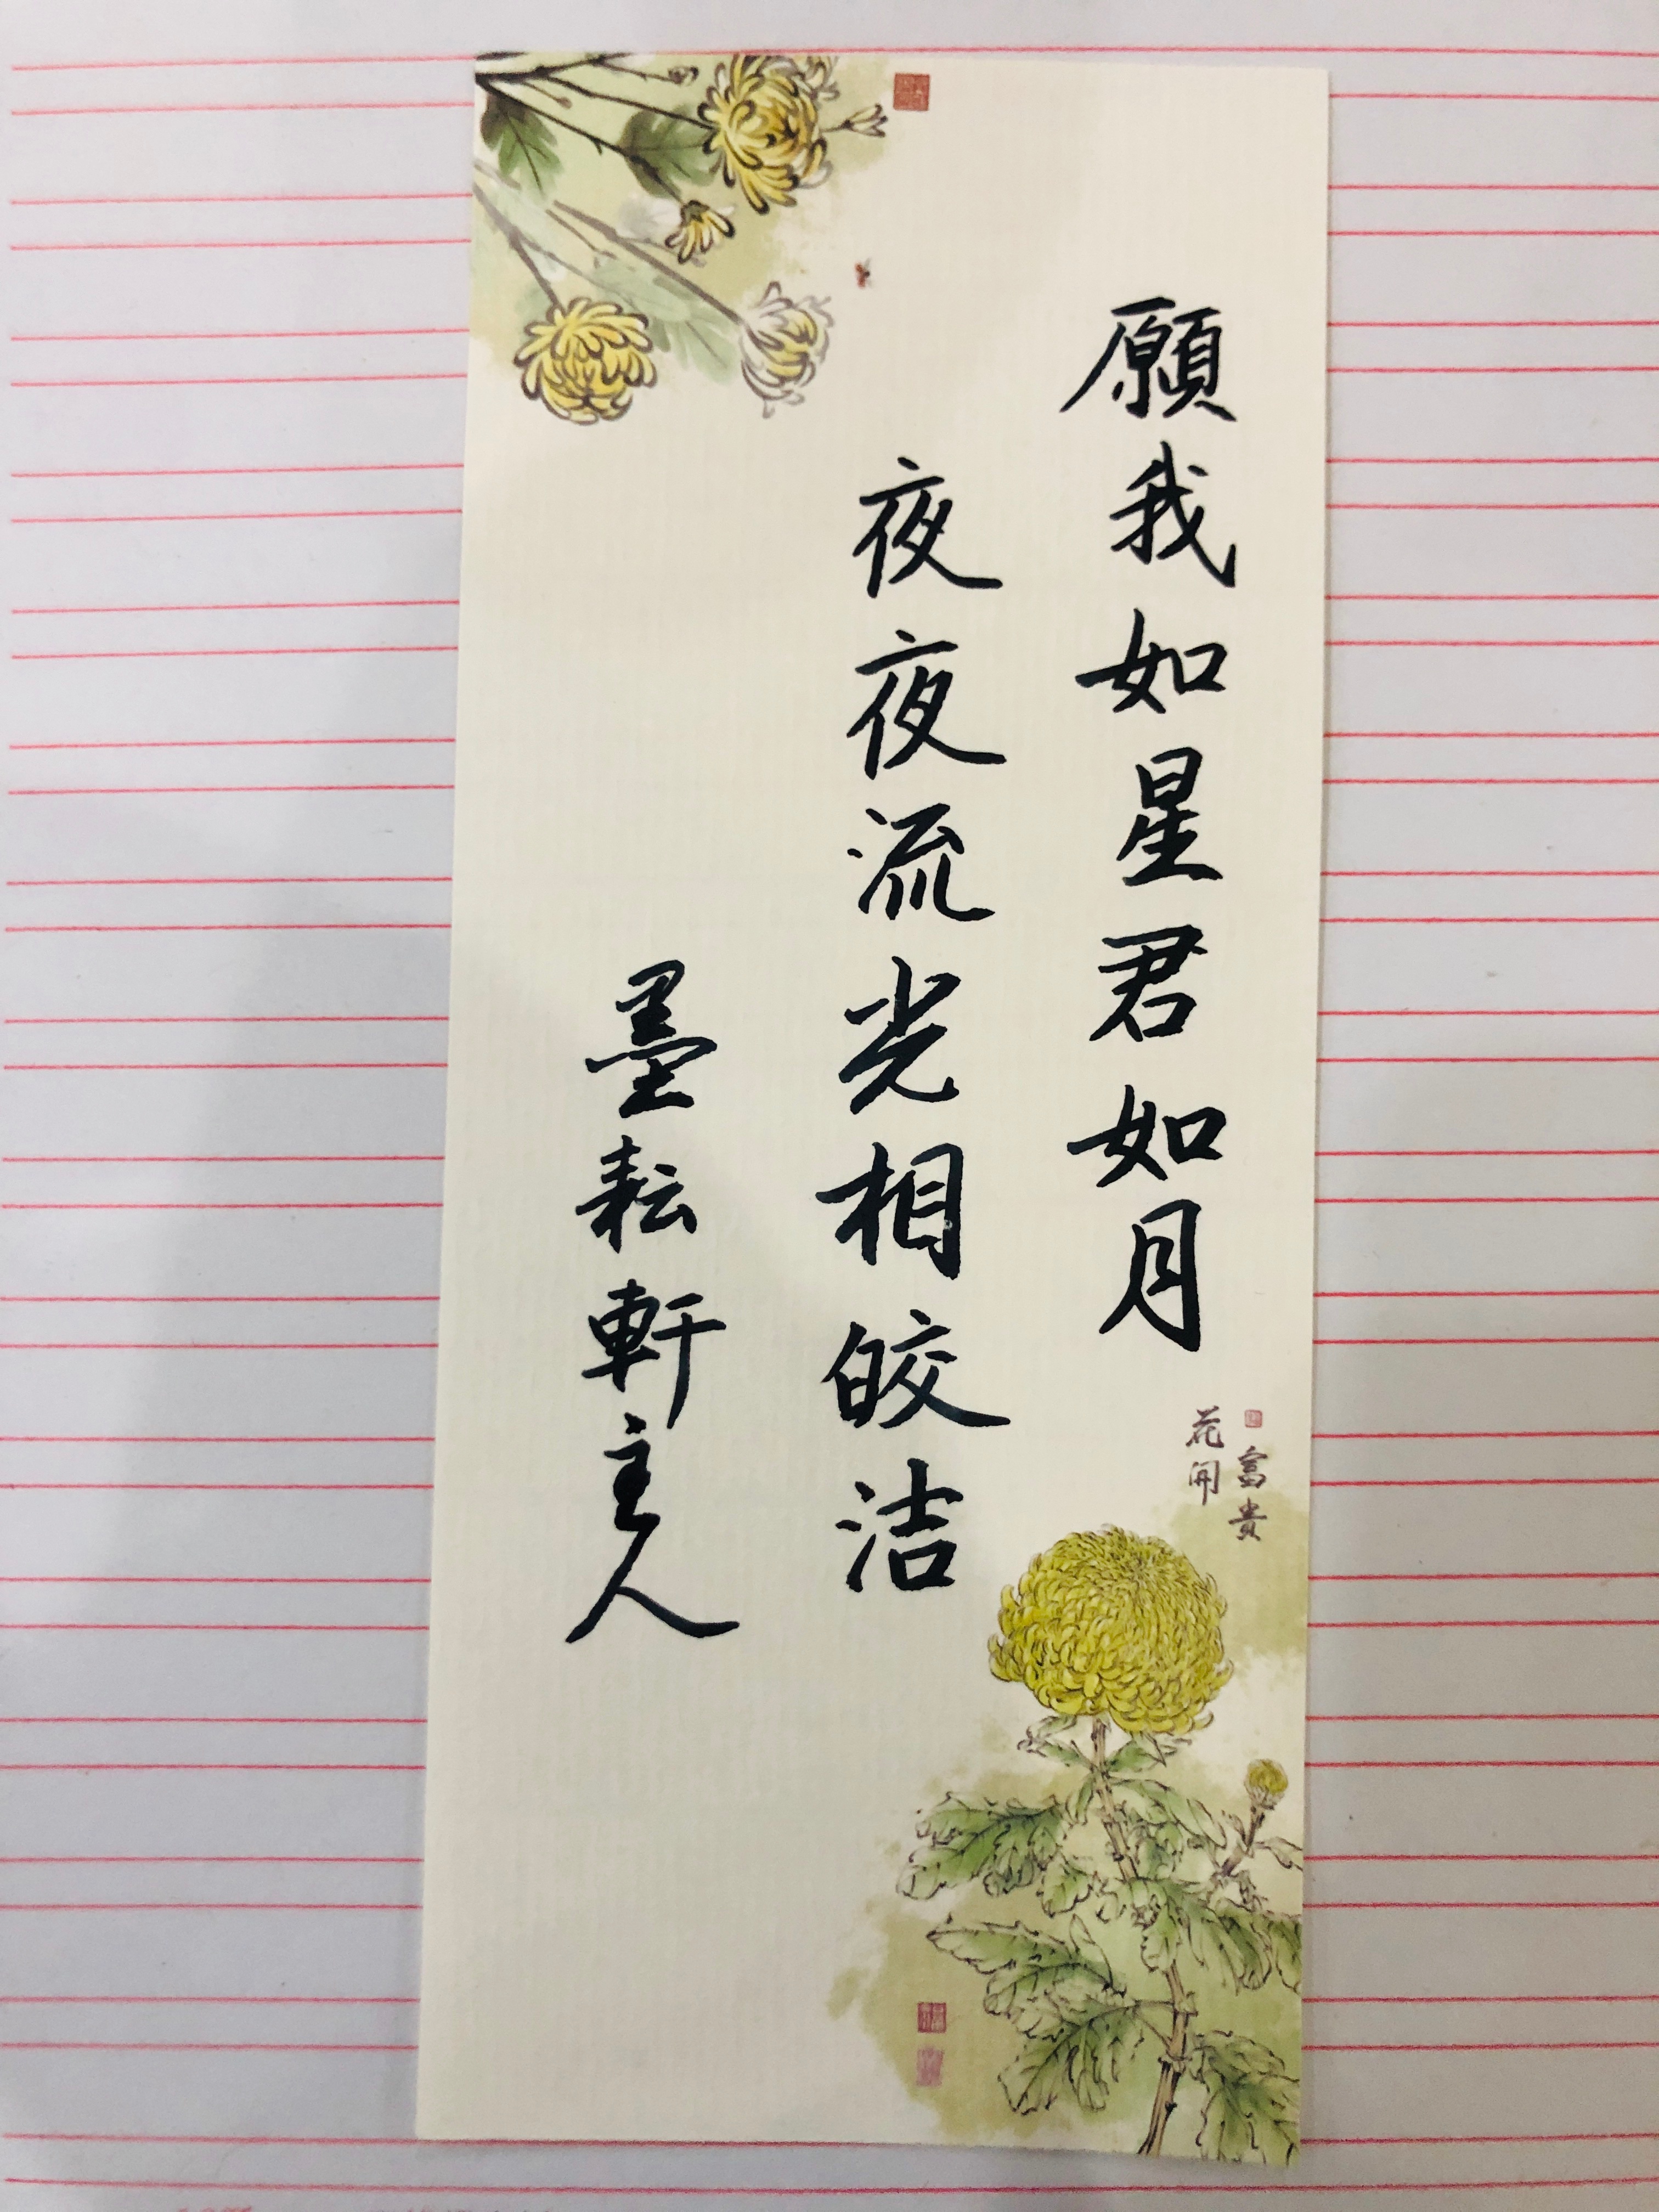 願我如星君如月
夜夜流光相皎洁
墨耘軒主人
富贵
花开